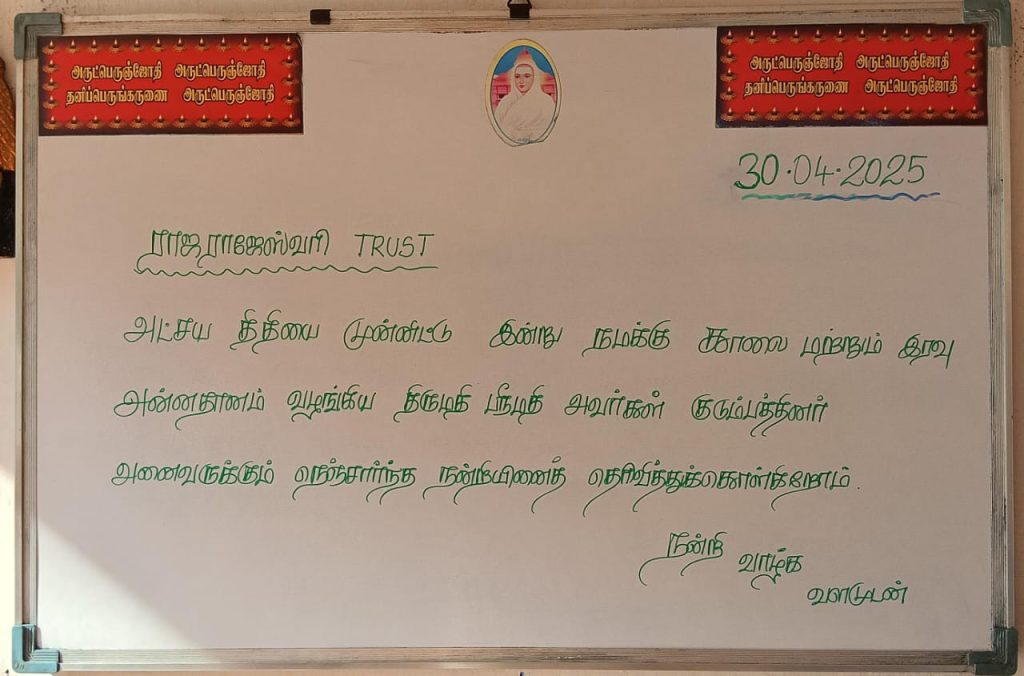 அருட்பெருஞ்ஜோதி அருட்பெருஞ்ஜோதி
தனிப்பெருங்கருணை அருட்பெருஞ்ஜோதி
அருட்பெருஞ்ஜோதி அருட்பெருஞ்ஜோதி
தனிப்பெருங்கருணை அருட்பெருஞ்ஜோதி
30.04.2025
ராஜராஜேஸ்வரி TRUST
அட்சய திதியை முன்னிட்டு இன்று நமக்கு காலை மற்றும் இரவு
அன்னதானம் வழங்கிய திருமதி பிரீமதி அவர்கள் குடும்பத்தினர்
அனைவருக்கும் நெஞ்சார்ந்த நன்றியினைத் தெரிவித்துக்கொள்கிறோம்.
நன்றி வாழ்க
வளமுடன்